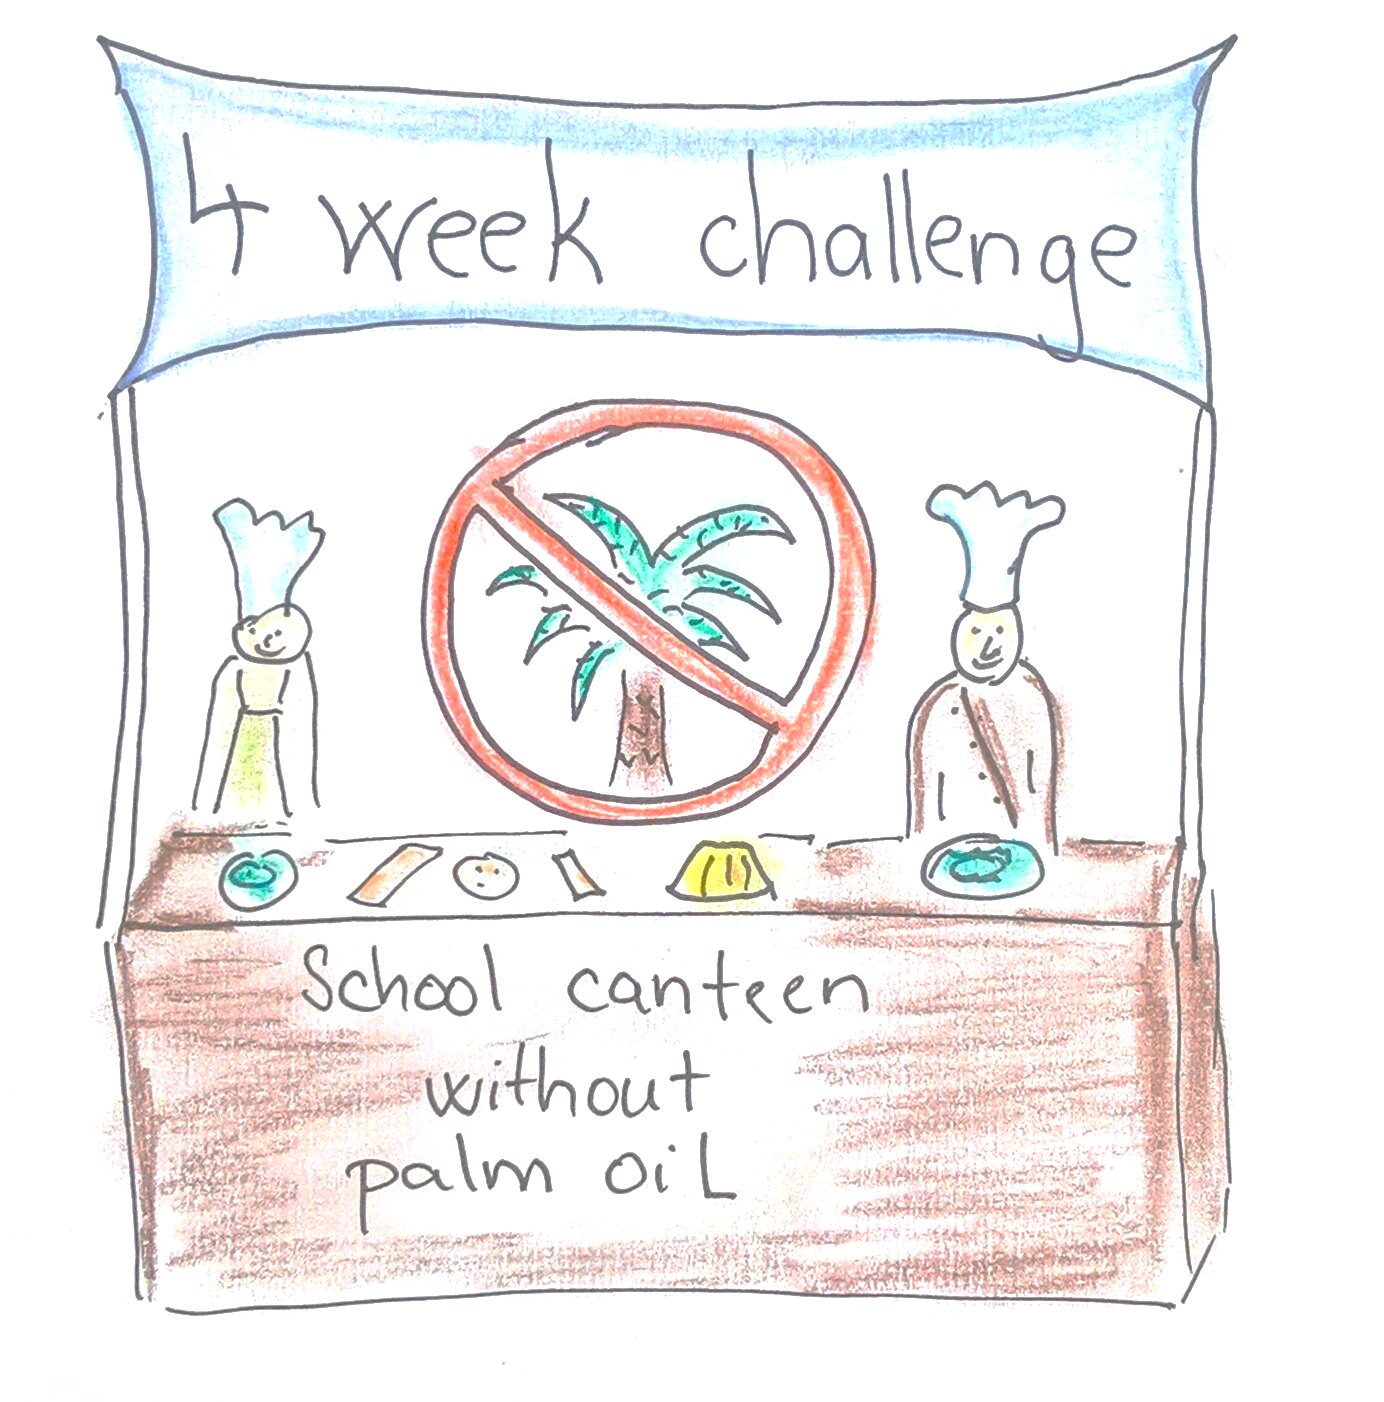 4 week challenge
School canteen
without
palm oil